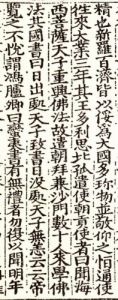 精也新羅百濟皆以俀為大國多珍物並敬仰之恒通使
往來大業三年其王多利思比孤遣使朝貢使者曰聞海
西菩薩天子重興佛法故遣朝拜兼沙門數十人來學佛
法其國書曰日出處天子致書日沒處天子無恙云云帝
覽之不悅謂鴻臚卿曰蠻夷書有無禮者勿復以聞明年